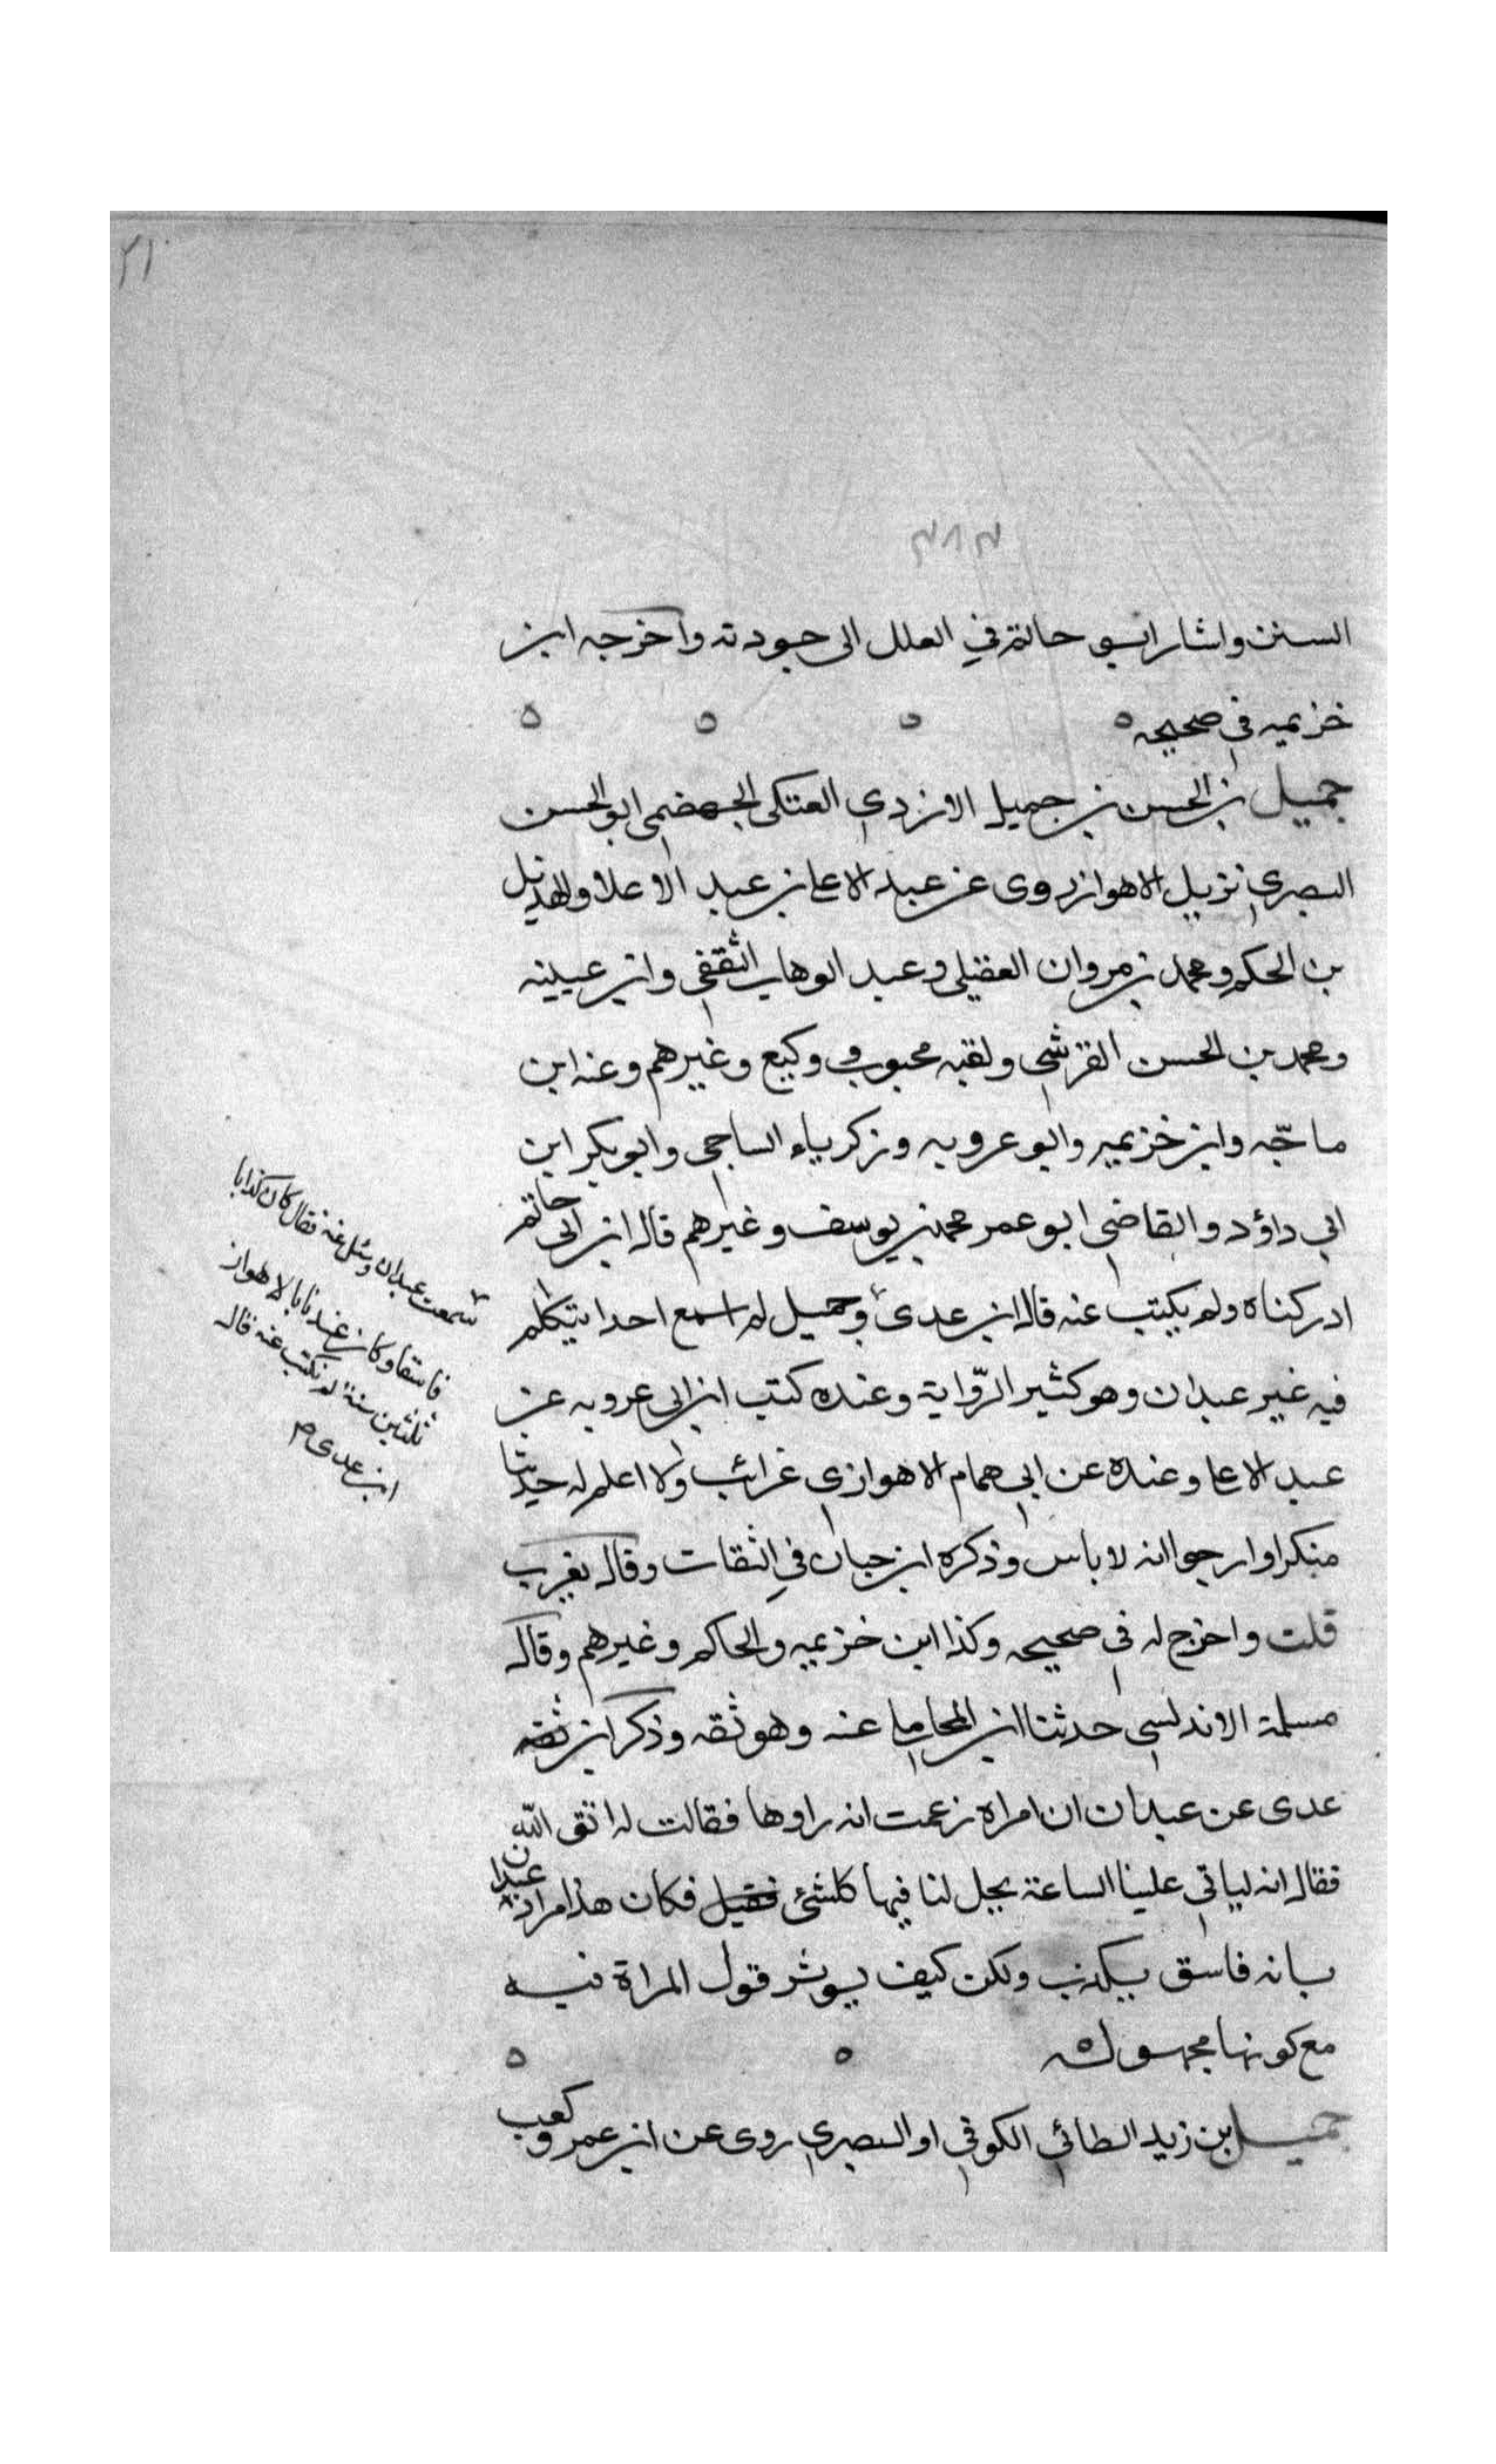 ٢١
٣٨٣
السنن واشار ابو حاتم في العلل الى جودته واخرجه ابن
خزيمه في صحيحه
جميل بن الحسن بن جميل الازدي العتكى الجهضمى ابو الحسن
البصري نزيل الاهواز روى عن عبد الاعلى بن عبد الاعلا والهذيل
بن الحكم ومحمد بن مروان العقيلى وعبد الوهاب الثقفى وابن عيينه
ومحمد بن الحسن القرشى ولقبه محبوب ووكيع وغيرهم وعنه ابن
ماجّه وابن خزيمه وابو عروبه وزكرياء الساجى وابو بكر ابن
ابي داؤد والقاضي ابو عمر محمد بن يوسف وغيرهم قال ابن ابى حاتم
ادركناه ولم يكتب عنه قال ابن عدى وجميل لم اسمع احدا يتكلم
فيه غير عبدان وهو كثير الرّواية وعنده كتب ابن ابى عروبه عن
عبد الاعلى وعنده عن ابي همام الاهوازي غرائب ولا اعلم له حديثا
منكرا وارجوا انه لا باس وذكره ابن حبان في الثقات وقال يغرب
قلت واخرج له في صحيحه وكذا ابن خزيمه والحاكم وغيرهم وقال
مسلمة الاندلسى حدثنا ابن المحاملى عنه وهو ثقه وذكر ابن ثقه
عدى عن عبدان ان امراه زعمت انه راودها فقالت له اتق الله
فقال انه لياتي علينا الساعة يحل لنا فيها كلشئ فقيل فكان هذا مراد عبدان
بانه فاسق يكذب ولكن كيف يوثر قول المراة فيه
مع كونها مجهوله
جميل بن زيد الطائي الكوفي او البصري روى عن ابن عمر وكعب
سمعت عبدان وسئل عنه فقال كان كذابا
فاسقا وكان عندنا بالاهواز
ثلثين سنة لم نكتب عنه قاله
ابن عدى م